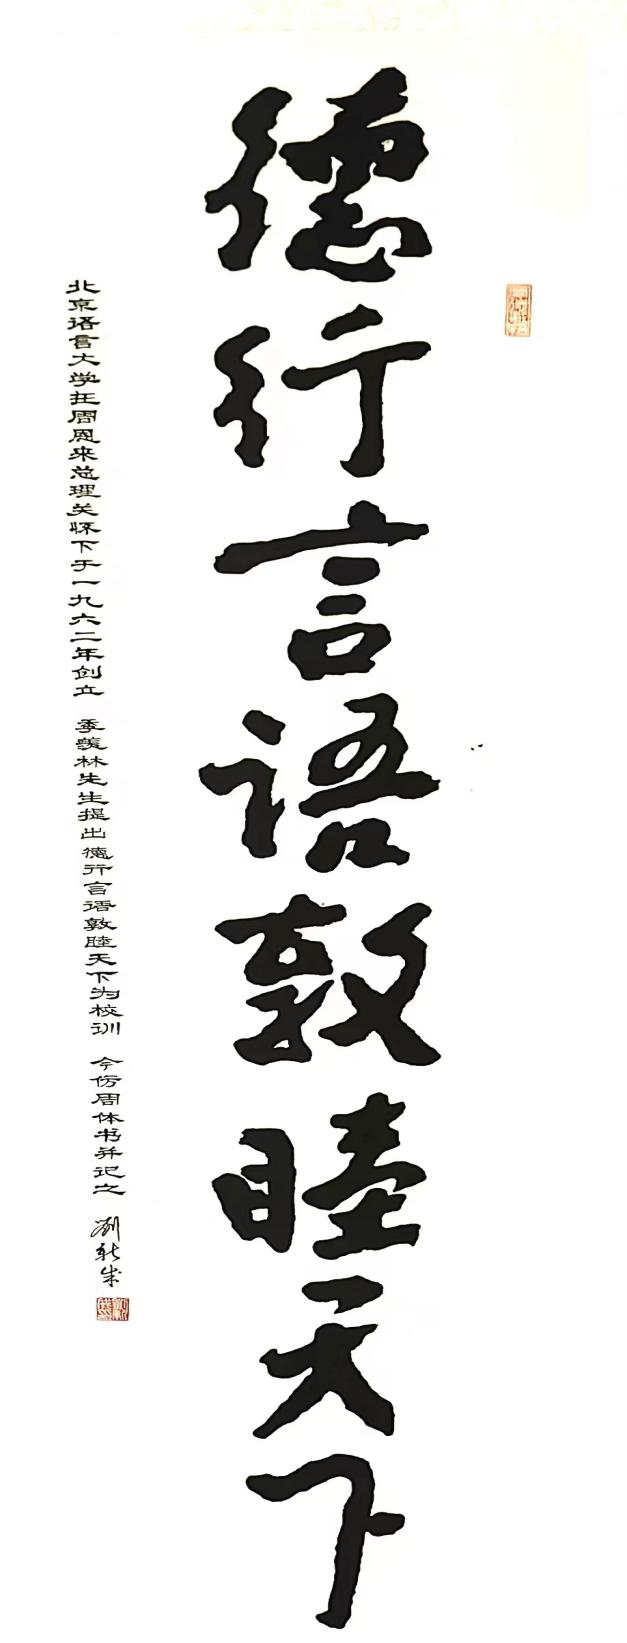 德行言語敦睦天下
北京语言大学在周恩来总理关怀下于一九六二年创立 季羡林先生提出德行言语敦睦天下为校训 今仿周体书并记之 刘新成